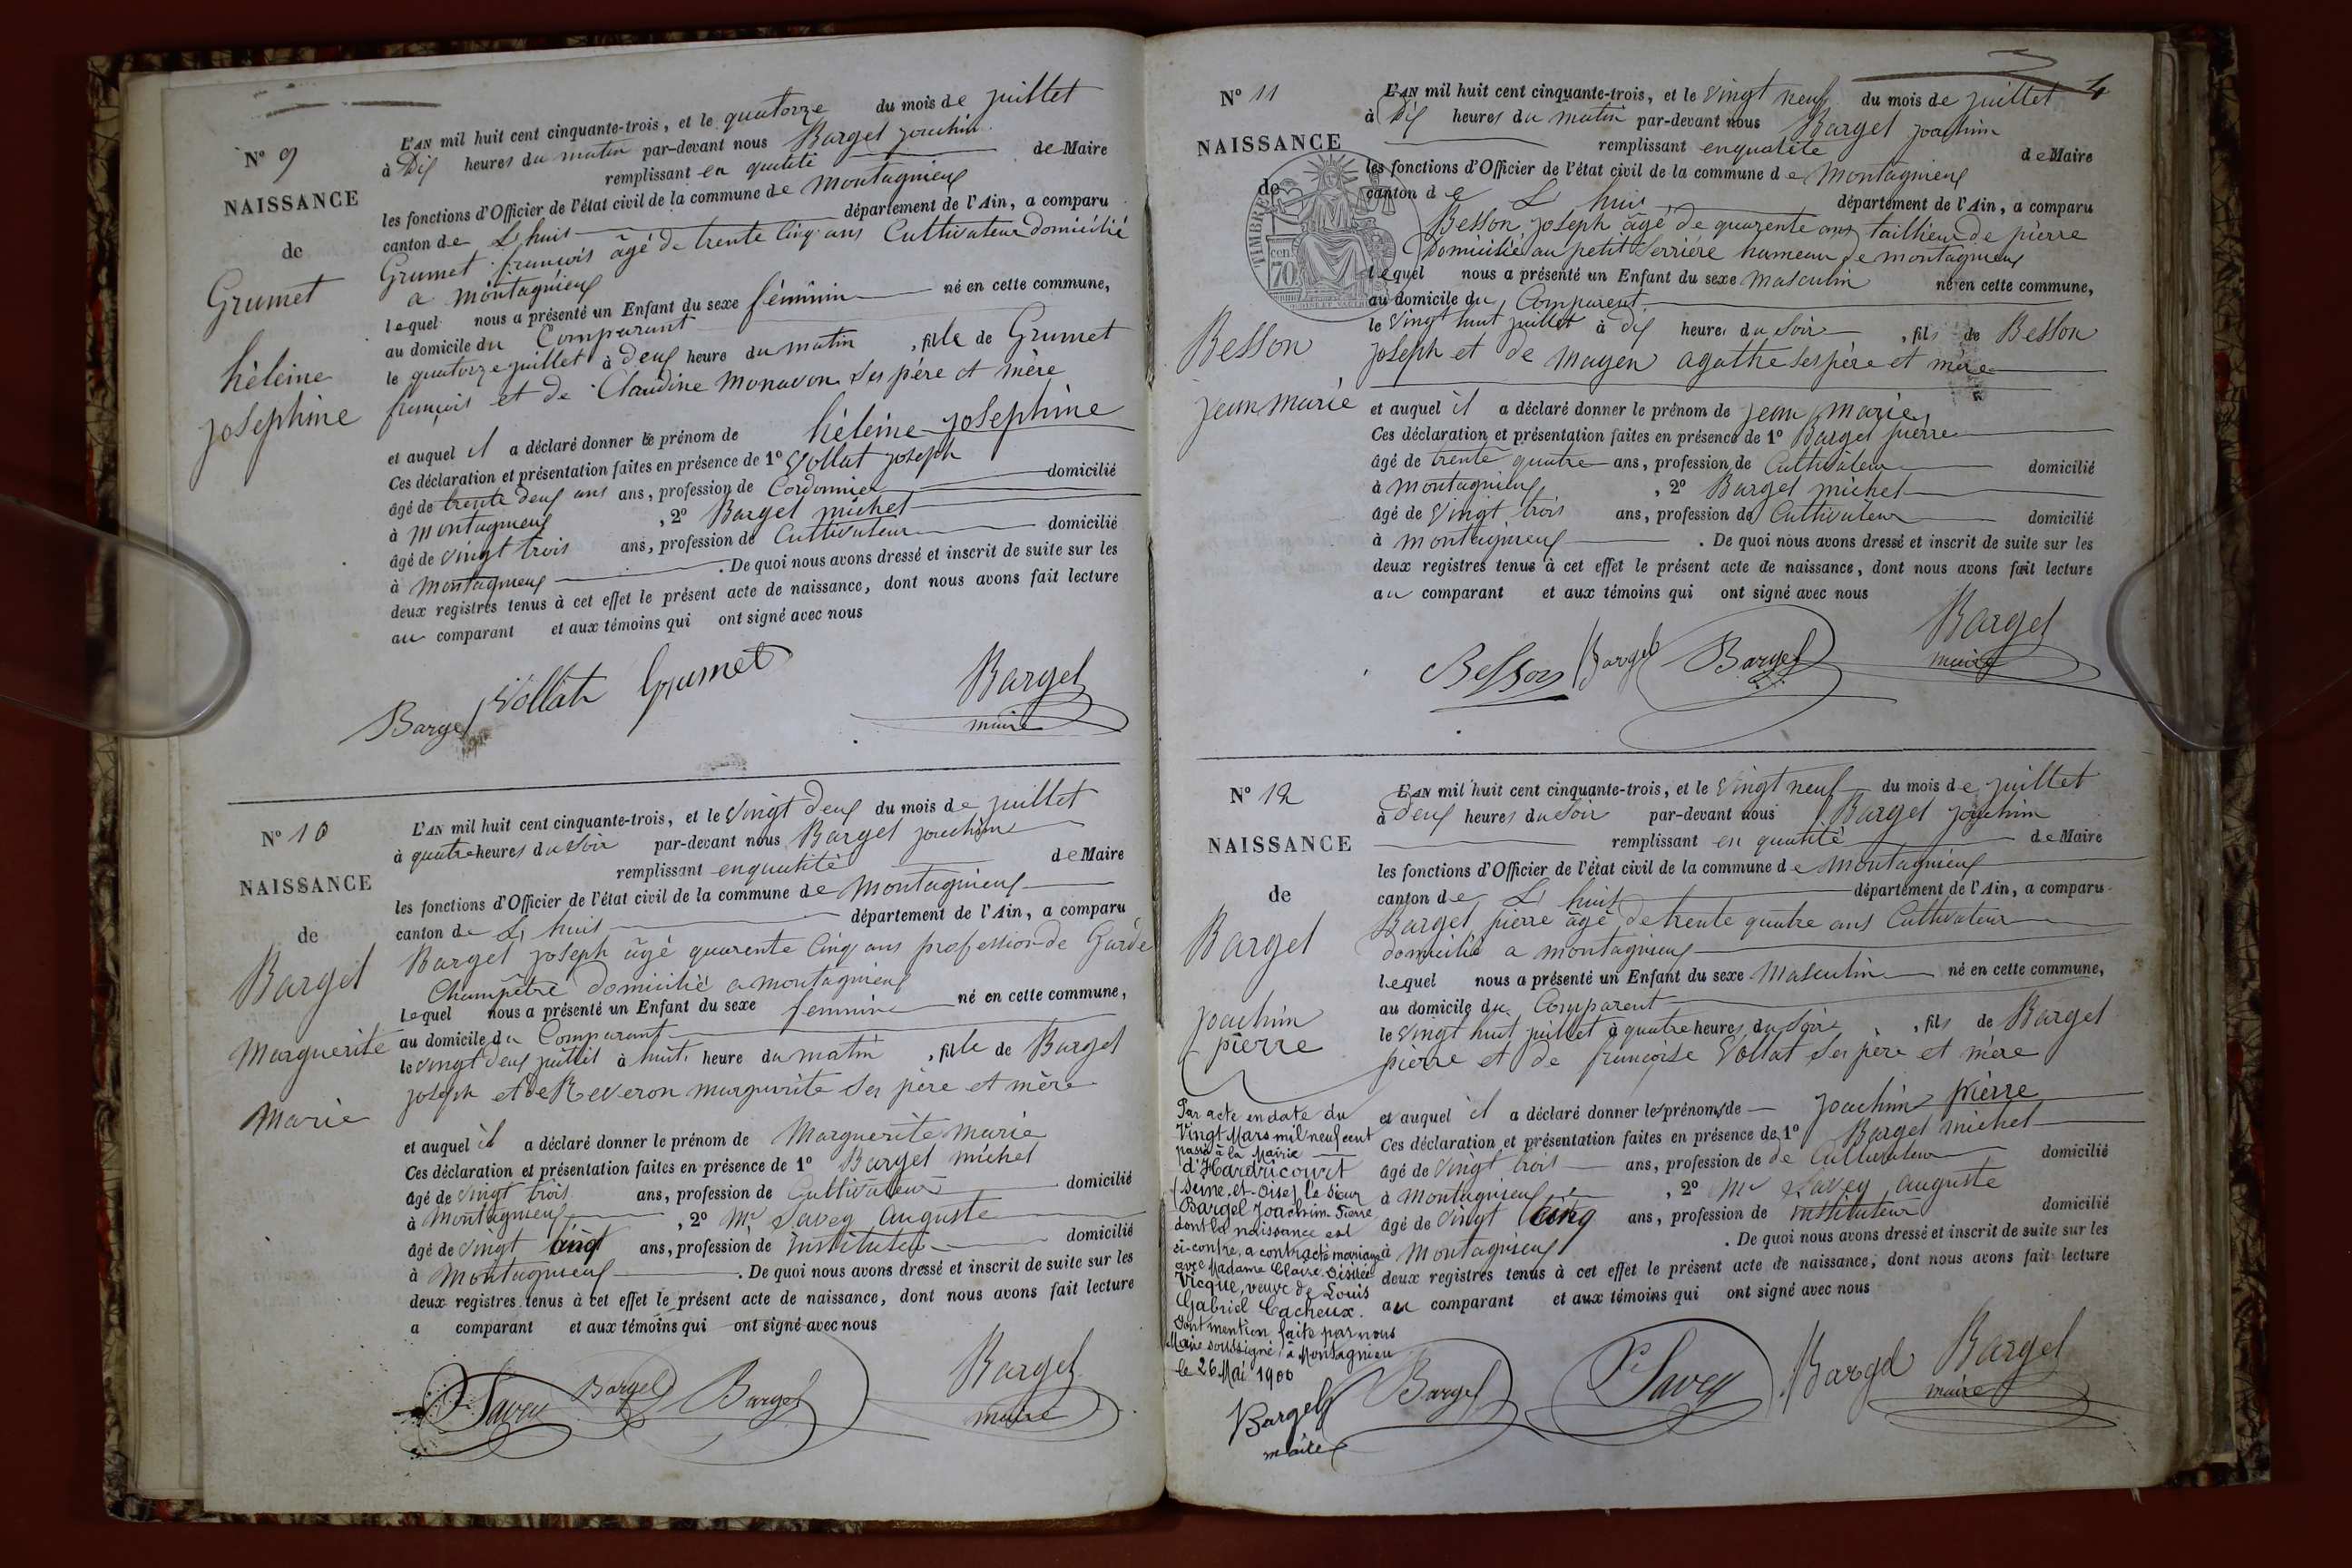 N° 9
NAISSANCE
de
Grumet
hèleine
josephine
L'AN mil huit cent cinquante-trois, et le quatorze du mois de juillet
à Dix heures du matin par-devant nous Bargel joachim
remplissant en qualité de Maire
les fonctions d'Officier de l'état civil de la commune de Montagnieux
canton de L'huis département de l'Ain, a comparu
Grumet françois âgé de trente Cinq ans Cultivateur domicilié
a montagnieux
lequel nous a présenté un Enfant du sexe féminin né en cette commune,
au domicile du Comparant
le quatorze juillet à deux heure du matin, fille de Grumet
françois et de Claudine Monavon Ses père et mère
et auquel il a déclaré donner le prénom de hèleine josephine
Ces déclaration et présentation faites en présence de 1° Vollat joseph
âgé de trente deux ans ans, profession de Cordonnier domicilié
à montagnieux, 2° Bargel michel
âgé de vingt trois ans, profession de Cultivateur domicilié
à Montagnieux. De quoi nous avons dressé et inscrit de suite sur les
deux registres tenus à cet effet le présent acte de naissance, dont nous avons fait lecture
au comparant et aux témoins qui ont signé avec nous
Bargel Vollat Grumet Bargel
maire
N° 10
NAISSANCE
de
Bargel
Marguerite
Marie
L'AN mil huit cent cinquante-trois, et le Vingt deux du mois de juillet
à quatre heures du Soir par-devant nous Bargel joachim
remplissant en qualité de Maire
les fonctions d'Officier de l'état civil de la commune de Montagnieux
canton de L'huis département de l'Ain, a comparu
Bargel joseph âgé quarente Cinq ans profession de Garde
Champêtre domicilié a montagnieux
lequel nous a présenté un Enfant du sexe feminin né en cette commune,
au domicile du Comparant
le vingt deux juillet à huit heure du matin, fille de Bargel
joseph et de Reveron marguerite Ses père et mère
et auquel il a déclaré donner le prénom de Marguerite marie
Ces déclaration et présentation faites en présence de 1° Bargel michel
âgé de vingt trois ans, profession de Cultivateur domicilié
à Montagnieux, 2° Mr Savey Auguste
âgé de vingt cinq ans, profession de instituteur domicilié
à Montagnieux. De quoi nous avons dressé et inscrit de suite sur les
deux registres tenus à cet effet le présent acte de naissance, dont nous avons fait lecture
a comparant et aux témoins qui ont signé avec nous
Savey Bargel Bargel Bargel
maire
4
N° 11
NAISSANCE
de
TIMBRE
70
Besson
jean marie
L'AN mil huit cent cinquante-trois, et le Vingt neuf du mois de juillet
à Dix heures du matin par-devant nous Bargel joachim
remplissant en qualité de Maire
les fonctions d'Officier de l'état civil de la commune de Montagnieux
canton de L'huis département de l'Ain, a comparu
Besson joseph âgé de quarente ans taillieur de pierre
Domicilié au petit Serrière hameau de montagnieux
lequel nous a présenté un Enfant du sexe Masculin né en cette commune,
au domicile du Comparent
le Vingt huit juillet à dix heures du Soir, fils de Besson
joseph et de Mayen agathe Ses père et mère
et auquel il a déclaré donner le prénom de jean Marie
Ces déclaration et présentation faites en présence de 1° Bargel pierre
âgé de trente quatre ans, profession de Cultivateur domicilié
à Montagnieux, 2° Bargel michel
âgé de Vingt trois ans, profession de Cultivateur domicilié
à montagnieux. De quoi nous avons dressé et inscrit de suite sur les
deux registres tenus à cet effet le présent acte de naissance, dont nous avons fait lecture
au comparant et aux témoins qui ont signé avec nous
Besson Bargel Bargel Bargel
maire
N° 12
NAISSANCE
de
Bargel
joachim
pierre
L'AN mil huit cent cinquante-trois, et le Vingt neuf du mois de juillet
à deux heures du Soir par-devant nous Bargel joachim
remplissant en qualité de Maire
les fonctions d'Officier de l'état civil de la commune de Montagnieux
canton de L'huis département de l'Ain, a comparu
Bargel pierre âgé de trente quatre ans Cultivateur
domicilié a montagnieux
lequel nous a présenté un Enfant du sexe Masculin né en cette commune,
au domicile du Comparent
le Vingt huit juillet à quatre heures du Soir, fils de Bargel
pierre et de françoise Vollat Ses père et mère
et auquel il a déclaré donner les prénoms de joachim pierre
Ces déclaration et présentation faites en présence de 1° Bargel michel
âgé de vingt trois ans, profession de de Cultivateur domicilié
à Montagnieux, 2° Mr Savey auguste
âgé de Vingt Cinq ans, profession de instituteur domicilié
à Montagnieux. De quoi nous avons dressé et inscrit de suite sur les
deux registres tenus à cet effet le présent acte de naissance, dont nous avons fait lecture
au comparant et aux témoins qui ont signé avec nous
Par acte en date du
Vingt Mars mil neuf cent
passé à la Mairie
d'Hardricourt
(Seine-et-Oise) le Sieur
Bargel Joachim Pierre
dont la naissance est
ci-contre, a contracté mariage
avec Madame Claire Désirée
Vicque, veuve de Louis
Gabriel Cacheux.
Dont mention faite par nous
Maire soussigné, à Montagnieu
le 26 Mai 1900
Bargel
maire
Bargel Savey Bargel Bargel
maire